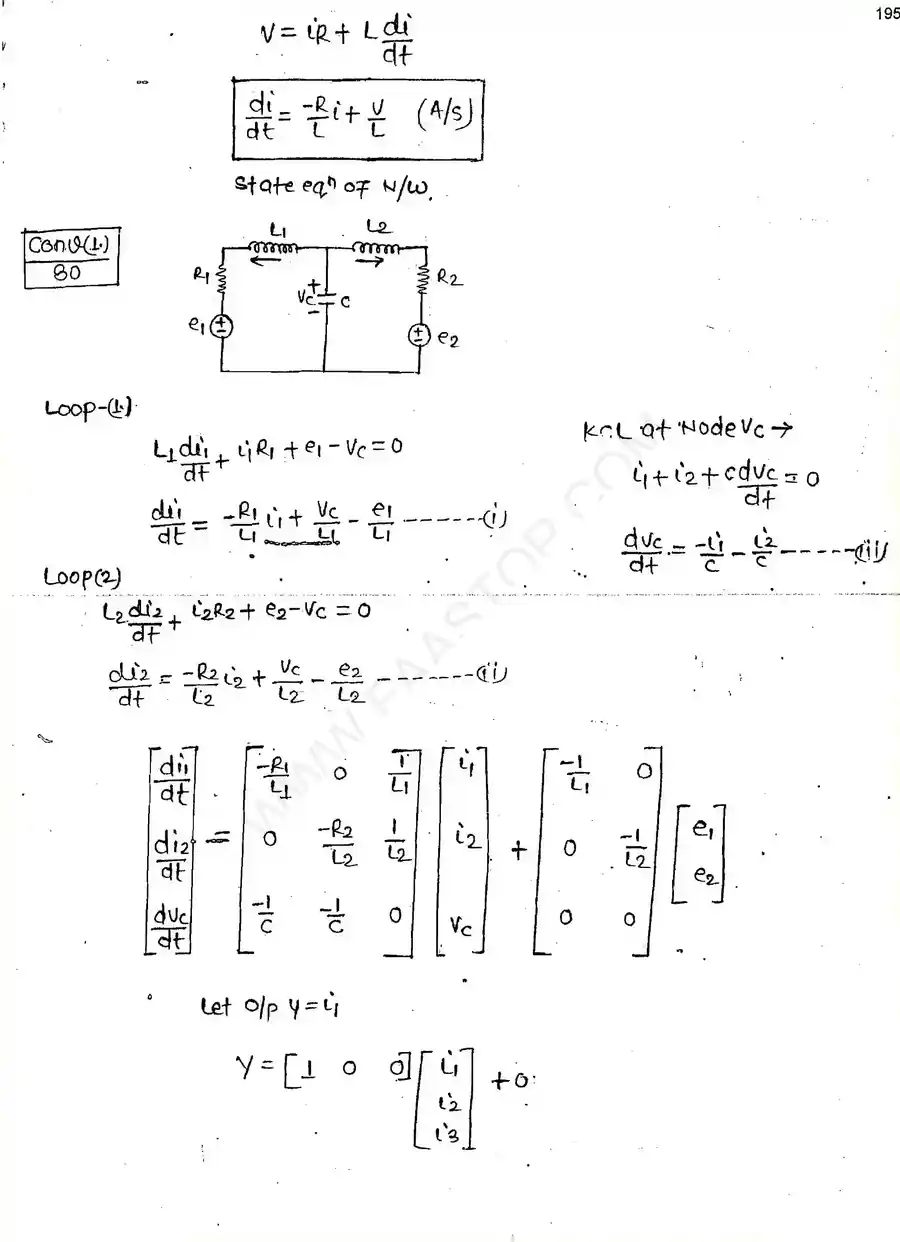 195
V = iR + L di/dt
di/dt = -R/L i + V/L (A/S)
State eqⁿ of N/W.
Conv(1.)
80
L1 L2
R1 Vc + - C R2
e1 + - e2 + -
Loop-(1.)
L1 di1/dt + i1R1 + e1 - Vc = 0
di1/dt = -R1/L1 i1 + Vc/L1 - e1/L1 ------(i)
KCL at Node Vc →
i1 + i2 + c dVc/dt = 0
dVc/dt = -i1/C - i2/C -----(iii)
Loop(2)
L2 di2/dt + i2R2 + e2 - Vc = 0
di2/dt = -R2/L2 i2 + Vc/L2 - e2/L2 -------(ii)
[di1/dt di2/dt dVc/dt] = [-R1/L1 0 1/L1; 0 -R2/L2 1/L2; -1/C -1/C 0] [i1 i2 Vc] + [-1/L1 0; 0 -1/L2; 0 0] [e1 e2]
Let O/P y = i1
Y = [1 0 0] [i1 i2 i3] + 0
WWW.FAASTOP.COM